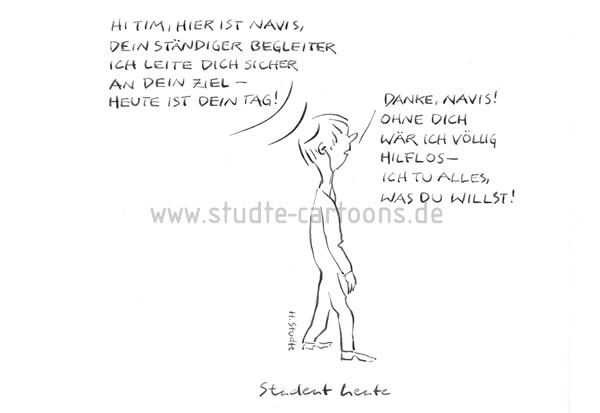 HI TIM, HIER IST NAVIS,
DEIN STÄNDIGER BEGLEITER
ICH LEITE DICH SICHER
AN DEIN ZIEL –
HEUTE IST DEIN TAG!
DANKE, NAVIS!
OHNE DICH
WÄR ICH VÖLLIG
HILFLOS –
ICH TU ALLES,
WAS DU WILLST!
www.studte-cartoons.de
H. Studte
Student heute